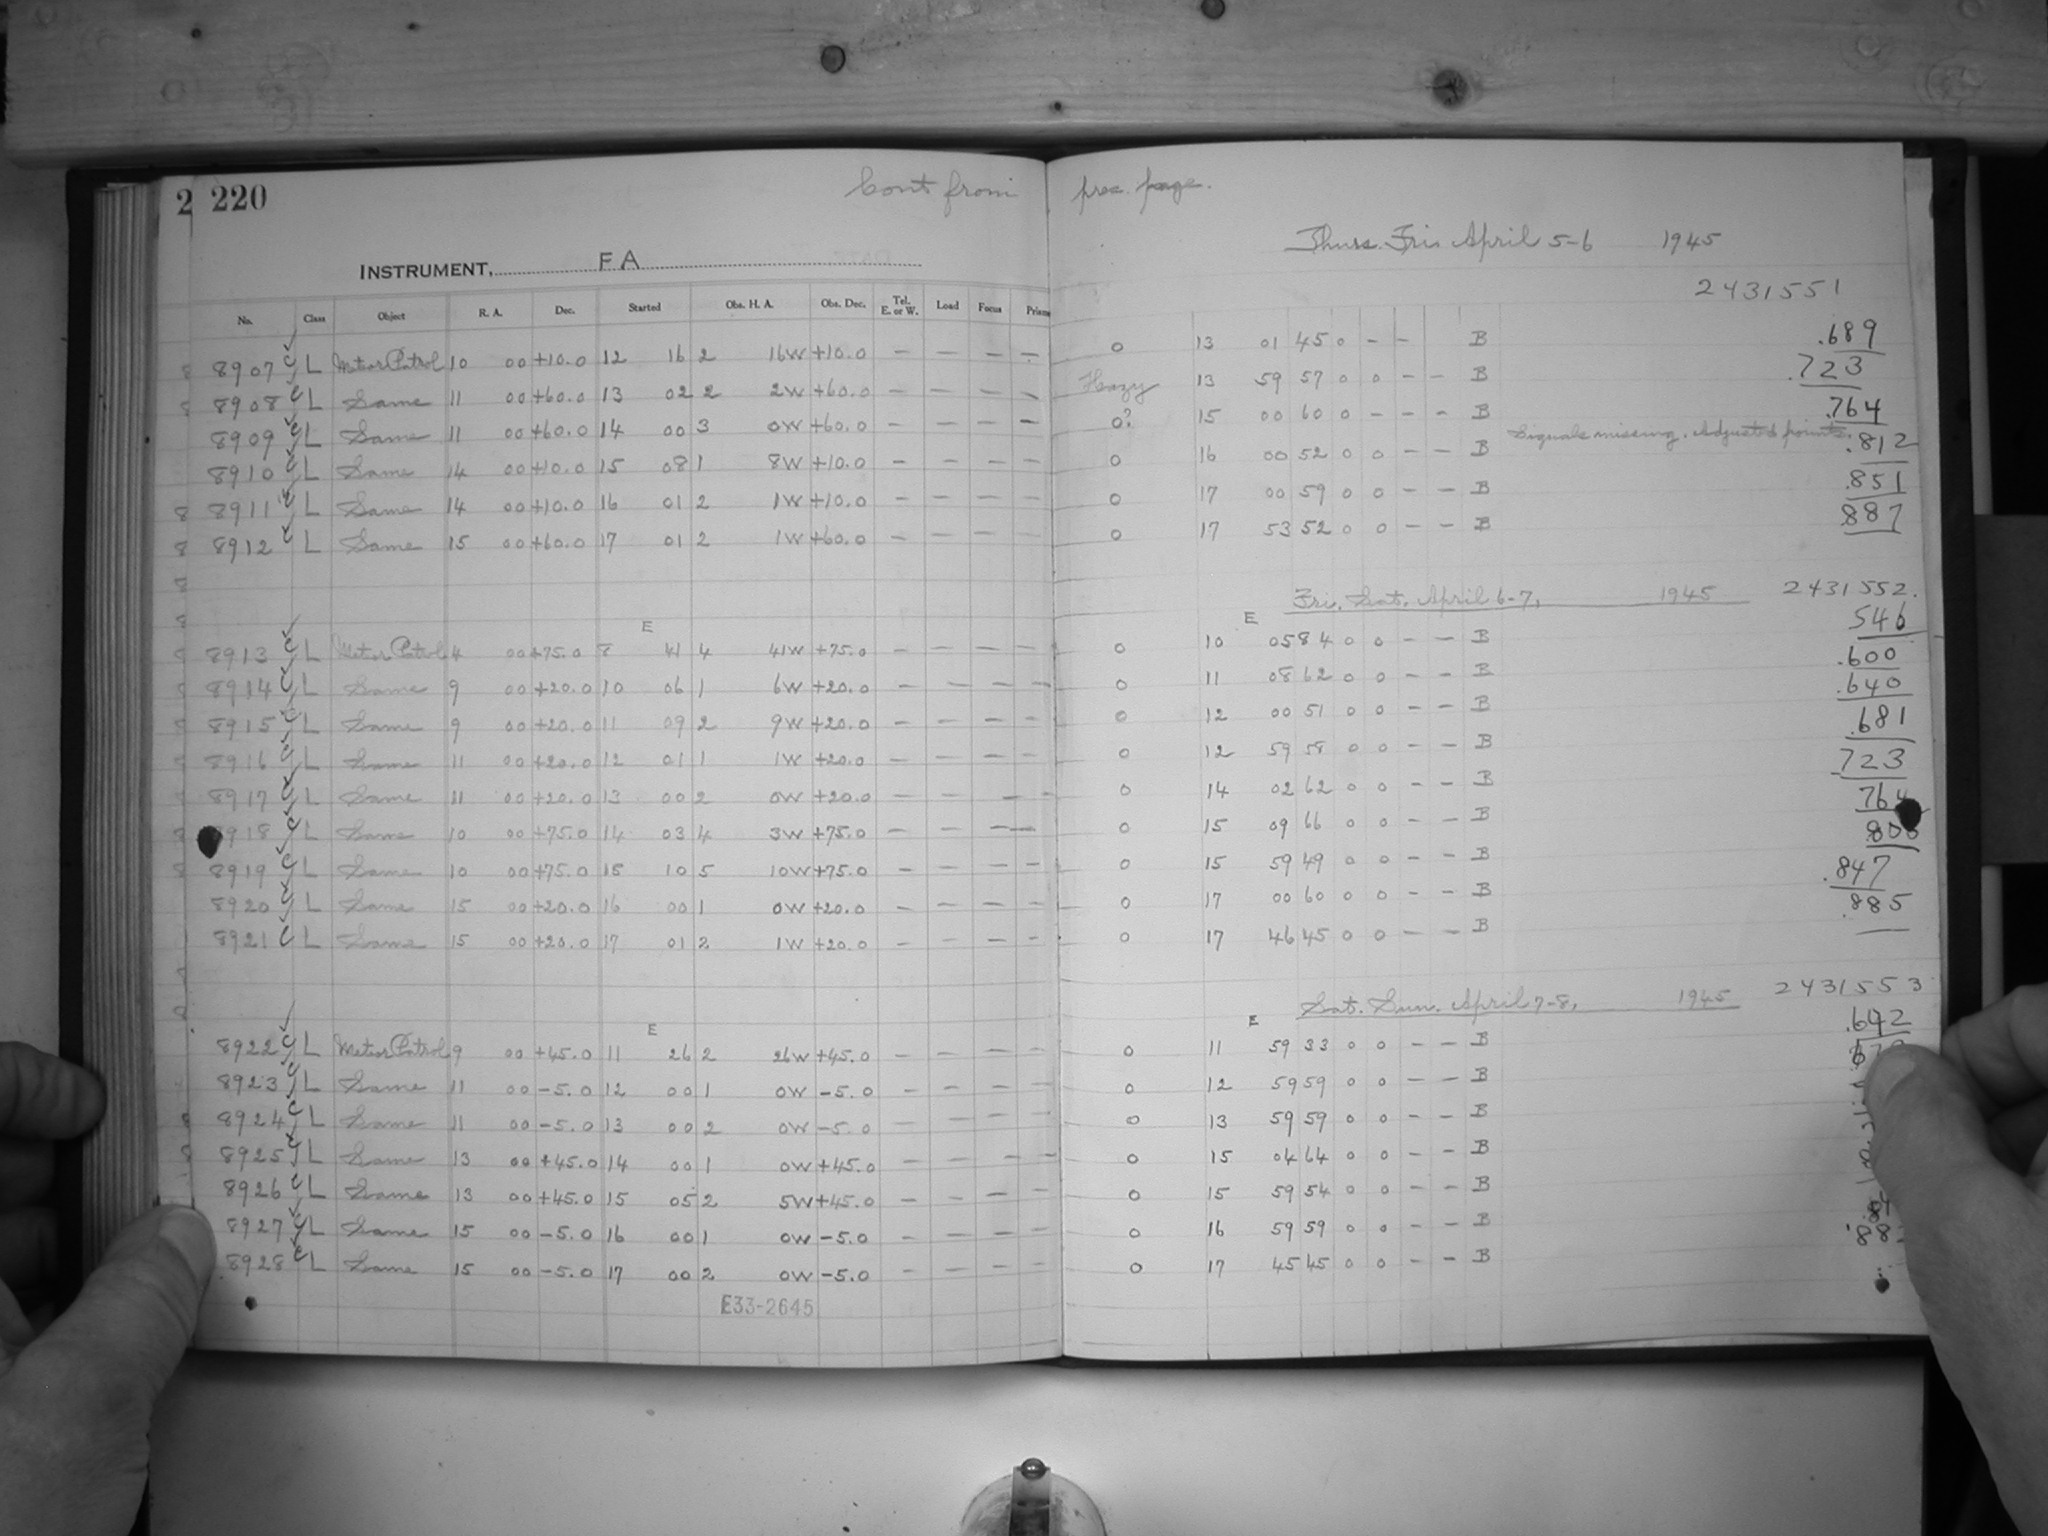 2 220 Cont from prec. page.
Thurs. Fri. April 5-6 1945
INSTRUMENT, FA
2431551
No. Class Object R. A. Dec. Started Obs. H. A. Obs. Dec. Tel. E. or W. Load Focus Prism
8907 C L Meteor Patrol 10 00 +10.0 12 16 2 16W +10.0 — — — — 0 13 01 45 0 - - B .689
8908 C L Same 11 00 +60.0 13 02 2 2W +60.0 — — — — Hazy 13 59 57 0 0 - - B .723
8909 C L Same 11 00 +60.0 14 00 3 0W +60.0 — — — — 0? 15 00 60 0 - - - B .764
Signals missing. Adjusted points.
8910 C L Same 14 00 +10.0 15 08 1 8W +10.0 — — — — 0 16 00 52 0 0 - - B .812
8911 C L Same 14 00 +10.0 16 01 2 1W +10.0 — — — — 0 17 00 59 0 0 - - B .851
8912 C L Same 15 00 +60.0 17 01 2 1W +60.0 — — — — 0 17 53 52 0 0 - - B .887
Fri. Sat. April 6-7, 1945 2431552.
E E
8913 C L Meteor Patrol 4 00 +75.0 8 41 4 41W +75.0 — — — — 0 10 05 84 0 0 - - B 546
8914 C L Same 9 00 +20.0 10 06 1 6W +20.0 — — — — 0 11 08 62 0 0 - - B .600
8915 C L Same 9 00 +20.0 11 09 2 9W +20.0 — — — — 0 12 00 51 0 0 - - B .640
8916 C L Same 11 00 +20.0 12 01 1 1W +20.0 — — — — 0 12 59 58 0 0 - - B .681
8917 C L Same 11 00 +20.0 13 00 2 0W +20.0 — — — — 0 14 02 62 0 0 - - B 723
8918 C L Same 10 00 +75.0 14 03 4 3W +75.0 — — — — 0 15 09 66 0 0 - - B 764
8919 C L Same 10 00 +75.0 15 10 5 10W +75.0 — — — — 0 15 59 49 0 0 - - B
8920 C L Same 15 00 +20.0 16 00 1 0W +20.0 — — — — 0 17 00 60 0 0 - - B .847
8921 C L Same 15 00 +20.0 17 01 2 1W +20.0 — — — - 0 17 46 45 0 0 - - B .885
Sat. Sun. April 7-8, 1945 2431553
E E
8922 C L Meteor Patrol 9 00 +45.0 11 26 2 26W +45.0 — — — — 0 11 59 33 0 0 - - B .642
8923 C L Same 11 00 -5.0 12 00 1 0W -5.0 — — — — 0 12 59 59 0 0 - - B
8924 C L Same 11 00 -5.0 13 00 2 0W -5.0 — — — — 0 13 59 59 0 0 - - B
8925 C L Same 13 00 +45.0 14 00 1 0W +45.0 — — — — 0 15 04 64 0 0 - - B
8926 C L Same 13 00 +45.0 15 05 2 5W +45.0 — — — — 0 15 59 54 0 0 - - B
8927 C L Same 15 00 -5.0 16 00 1 0W -5.0 — — — — 0 16 59 59 0 0 - - B
8928 C L Same 15 00 -5.0 17 00 2 0W -5.0 — — — — 0 17 45 45 0 0 - - B
E33-2645